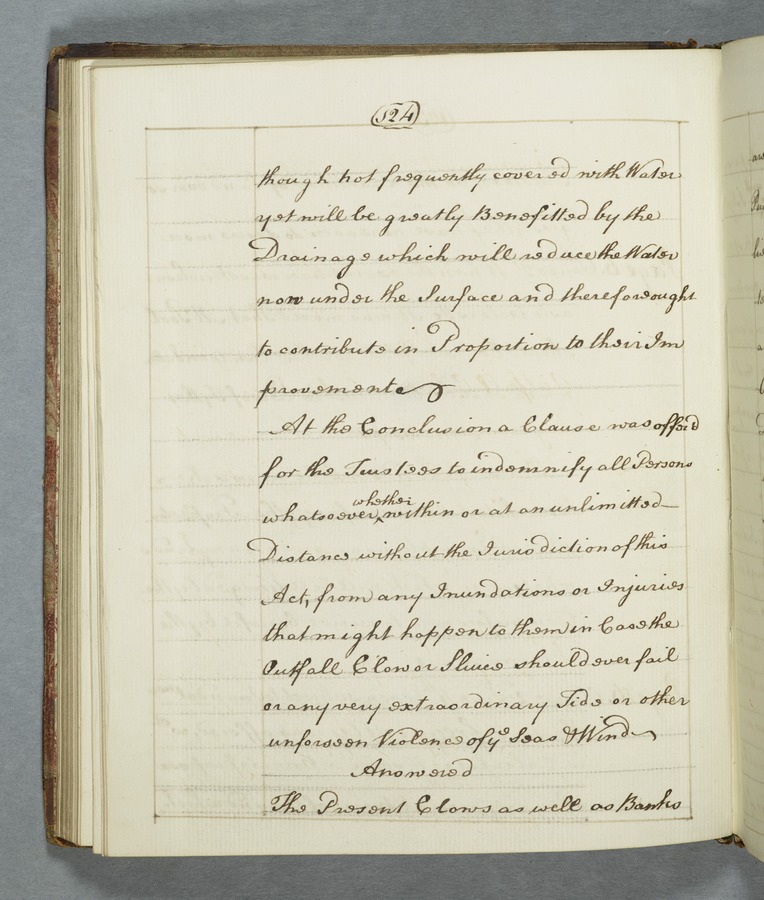 524
though not frequently covered with Water
yet will be greatly Benefitted by the
Drainage which will reduce the Water
now under the Surface and therefore ought
to contribute in Proportion to their Im
provements
At the Conclusion a Clause was offer'd
for the Trustees to indemnify all Persons
whatsoever, whether within or at an unlimitted
Distance without the Jurisdiction of this
Act, from any Inundations or Injuries
that might happen to them in Case the
Outfall Clow or Sluice should ever fail
or any very extraordinary Tide or other
unforseen Violence of ye Seas & Wind
Answered
The Present Clows as well as Banks